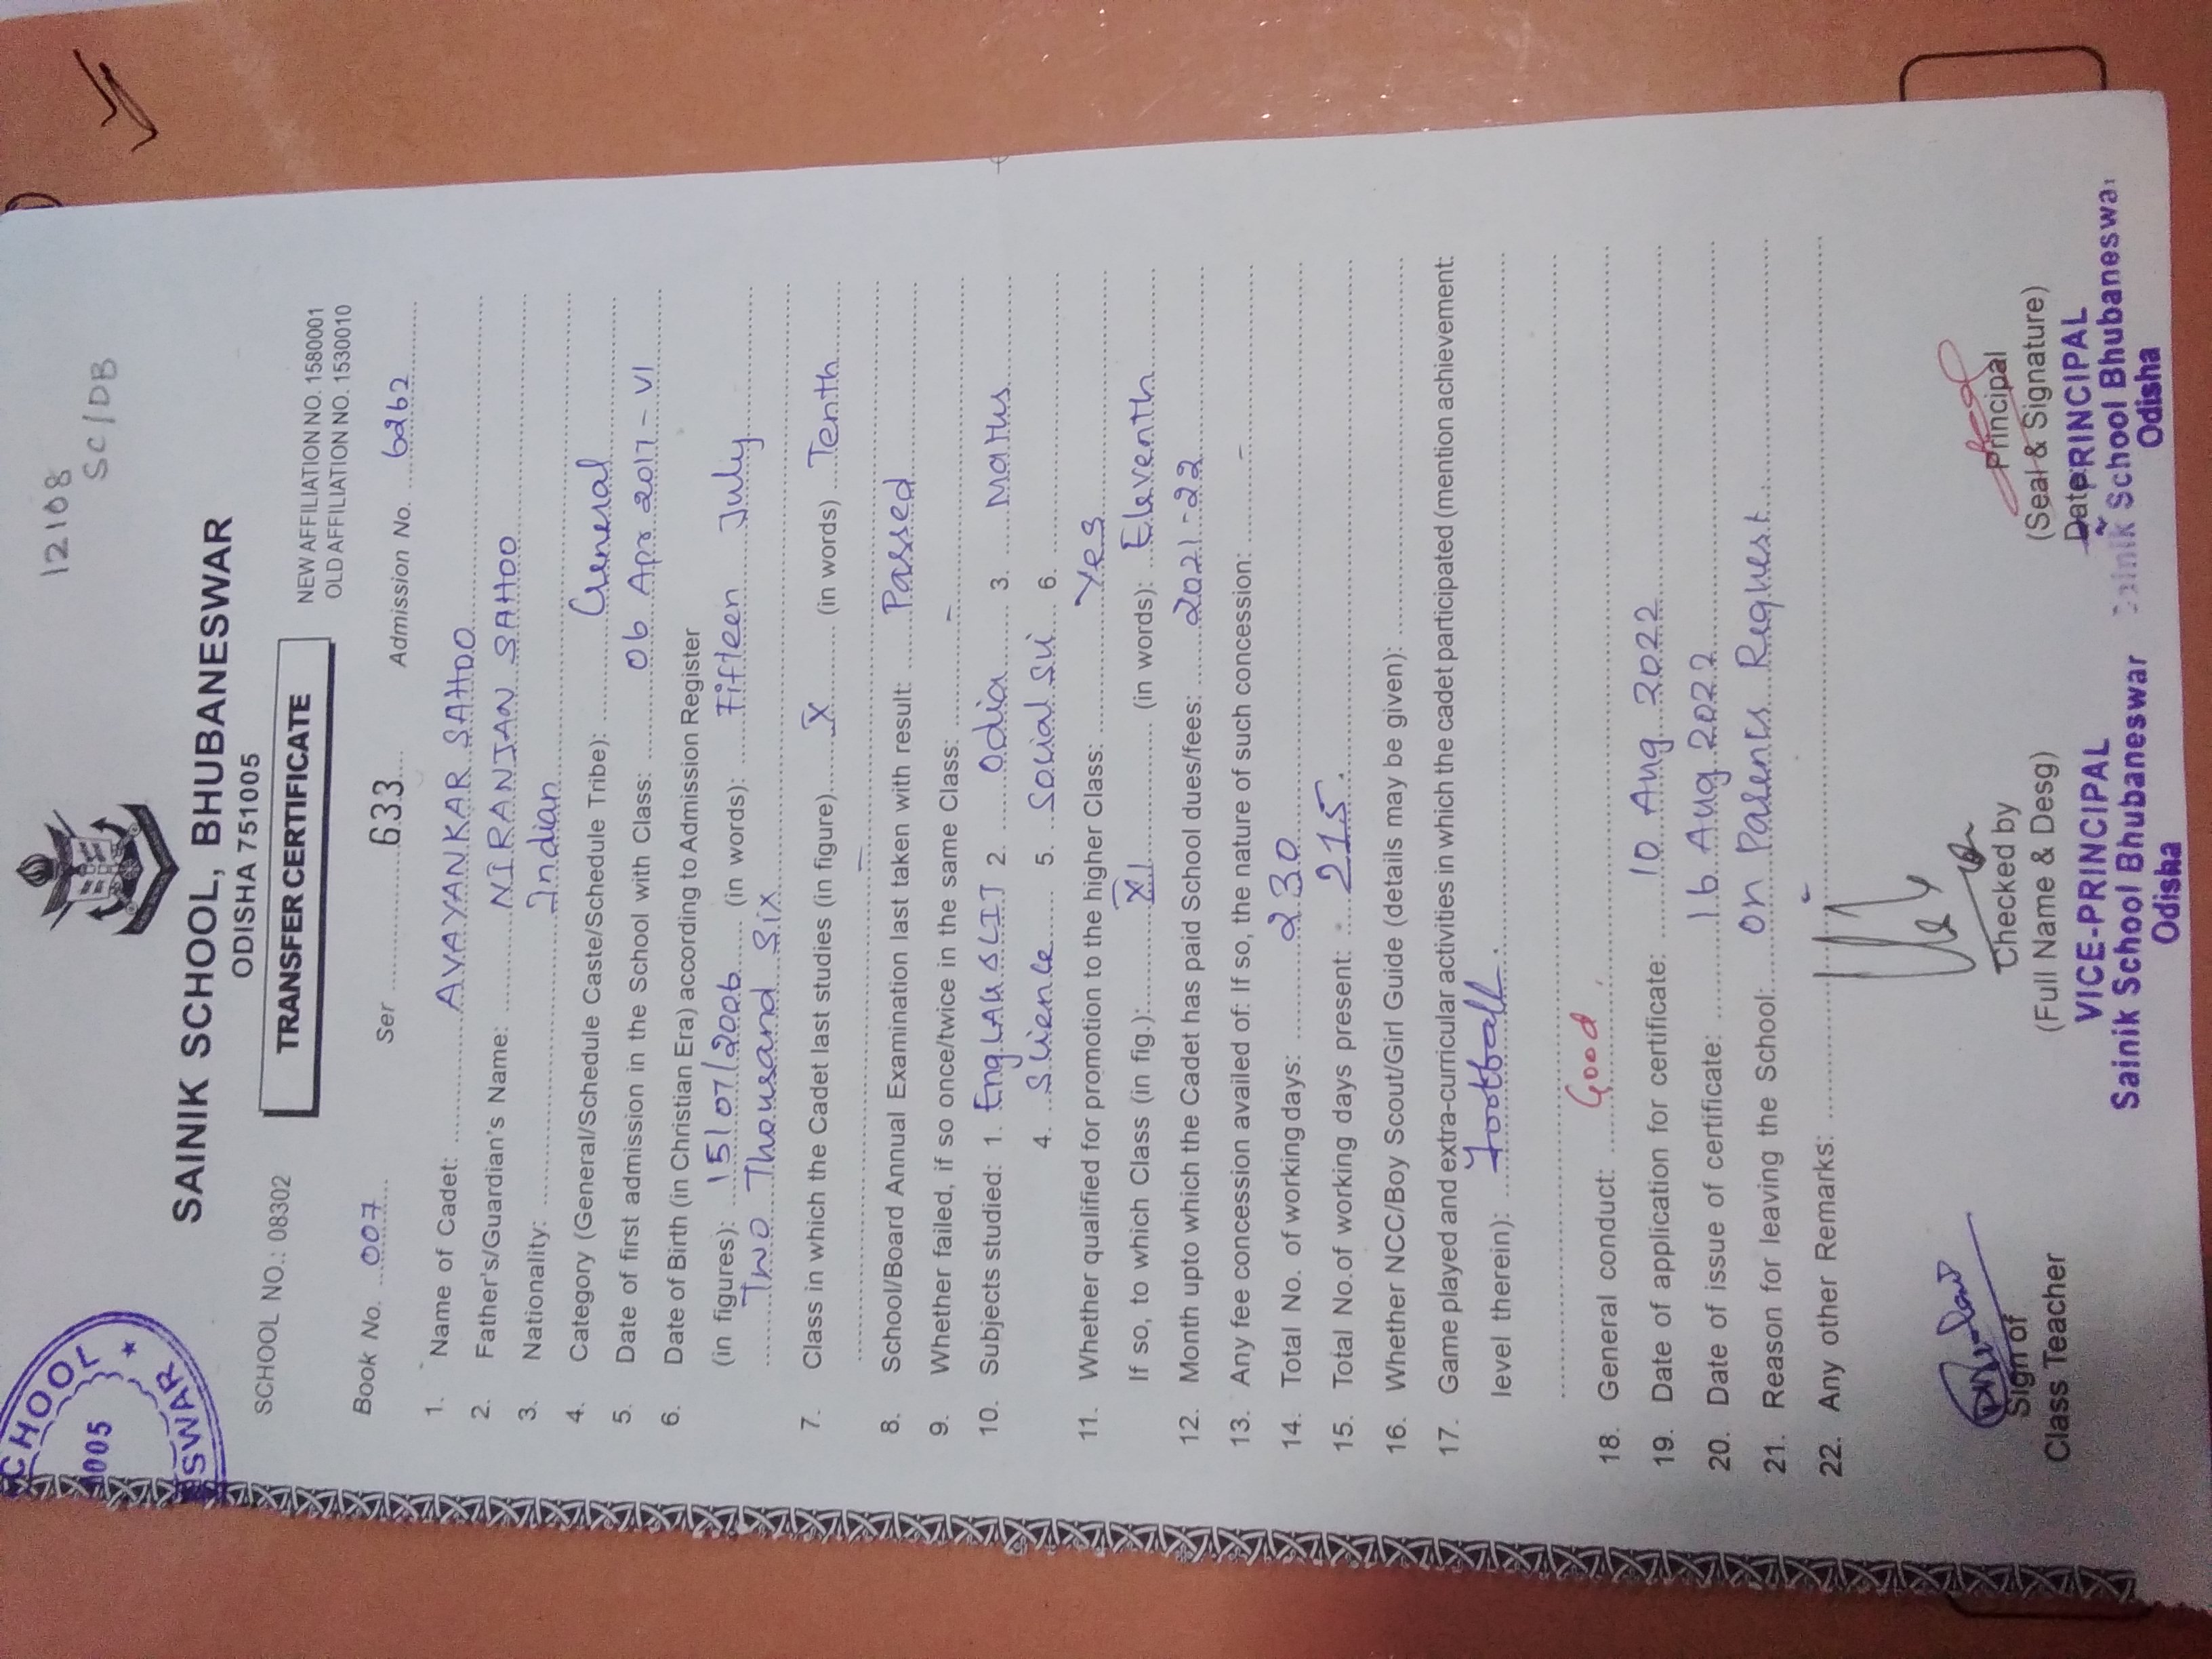 12108
SC/DB
SAINIK SCHOOL, BHUBANESWAR
ODISHA 751005
TRANSFER CERTIFICATE
SCHOOL NO.: 08302
NEW AFFILIATION NO. 1580001
OLD AFFILIATION NO. 1530010
CHOOL
1005
SWAR
Book No. 007 Ser 633 Admission No. 6262
1. Name of Cadet: AVAYANKAR SAHOO
2. Father's/Guardian's Name: NIRANJAN SAHOO
3. Nationality: Indian
4. Category (General/Schedule Caste/Schedule Tribe): General
5. Date of first admission in the School with Class: 06 Apr 2017 - VI
6. Date of Birth (in Christian Era) according to Admission Register
(in figures): 15/07/2006 (in words): Fifteen July
Two Thousand Six
7. Class in which the Cadet last studies (in figure) X (in words) Tenth
-
8. School/Board Annual Examination last taken with result: Passed
9. Whether failed, if so once/twice in the same Class: -
10. Subjects studied: 1. Eng LAN & LIT 2. Odia 3. Maths
4. Science 5. Social Sci 6.
11. Whether qualified for promotion to the higher Class: Yes
If so, to which Class (in fig.): XI (in words): Eleventh
12. Month upto which the Cadet has paid School dues/fees: 2021-22
13. Any fee concession availed of: If so, the nature of such concession: -
14. Total No. of working days: 230
15. Total No.of working days present: 215.
16. Whether NCC/Boy Scout/Girl Guide (details may be given):
17. Game played and extra-curricular activities in which the cadet participated (mention achievement
level therein): Football.
18. General conduct: Good
19. Date of application for certificate: 10 Aug 2022
20. Date of issue of certificate: 16 Aug 2022
21. Reason for leaving the School: On Parents Request
22. Any other Remarks: -
Sign of
Class Teacher
Checked by
(Full Name & Desg)
VICE-PRINCIPAL
Sainik School Bhubaneswar
Odisha
Principal
(Seal & Signature)
Date
PRINCIPAL
Sainik School Bhubaneswar
Odisha